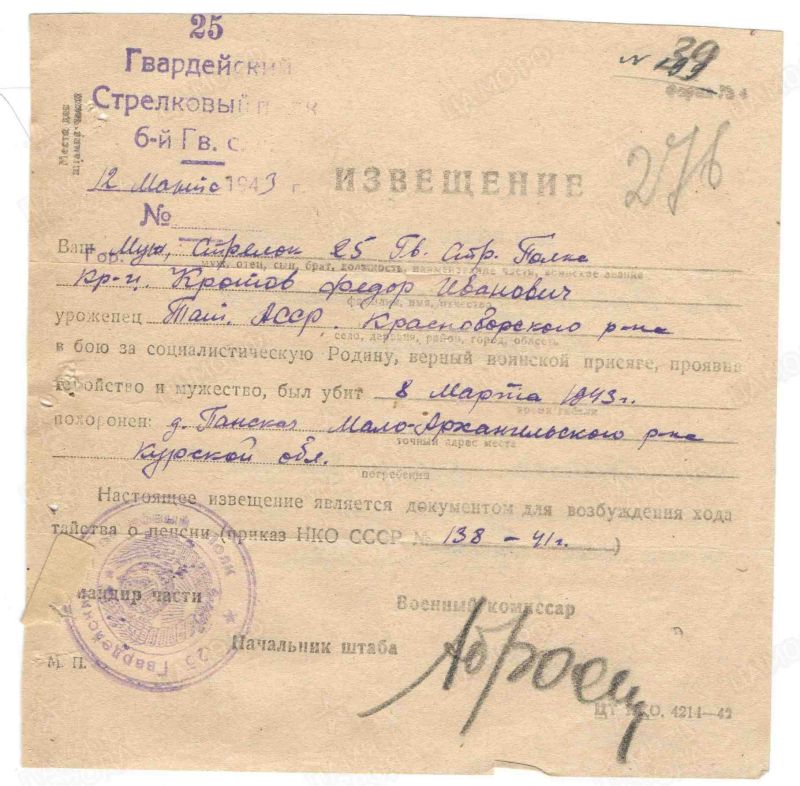 25
Гвардейский
Стрелковый полк
6-й Гв. с.
Место для
штампа части
N 39
Форма № 4
276
12 Марта 1943 г.
ИЗВЕЩЕНИЕ
№
Гор.
Ваш Муж, Стрелок 25 Гв. Стр. Полка
муж, отец, сын, брат, должность, наименование части, воинское звание
кр-ц. Кротов Федор Иванович
фамилия, имя, отчество
уроженец Тат. АССР. Красноборского р-на
село, деревня, район, город, область
в бою за социалистическую Родину, верный воинской присяге, проявив
геройство и мужество, был убит 8 Марта 1943 г.
время гибели
похоронен: д. Панская Мало-Архангильского р-на
точный адрес места
Курской обл.
погребения
Настоящее извещение является документом для возбуждения хода
тайства о пенсии (приказ НКО СССР № 138 - 41 г. )
мандир части
Военный комиссар
Начальник штаба
М. П.
25 Гвардейский полк
ЦТ НКО. 4214—42